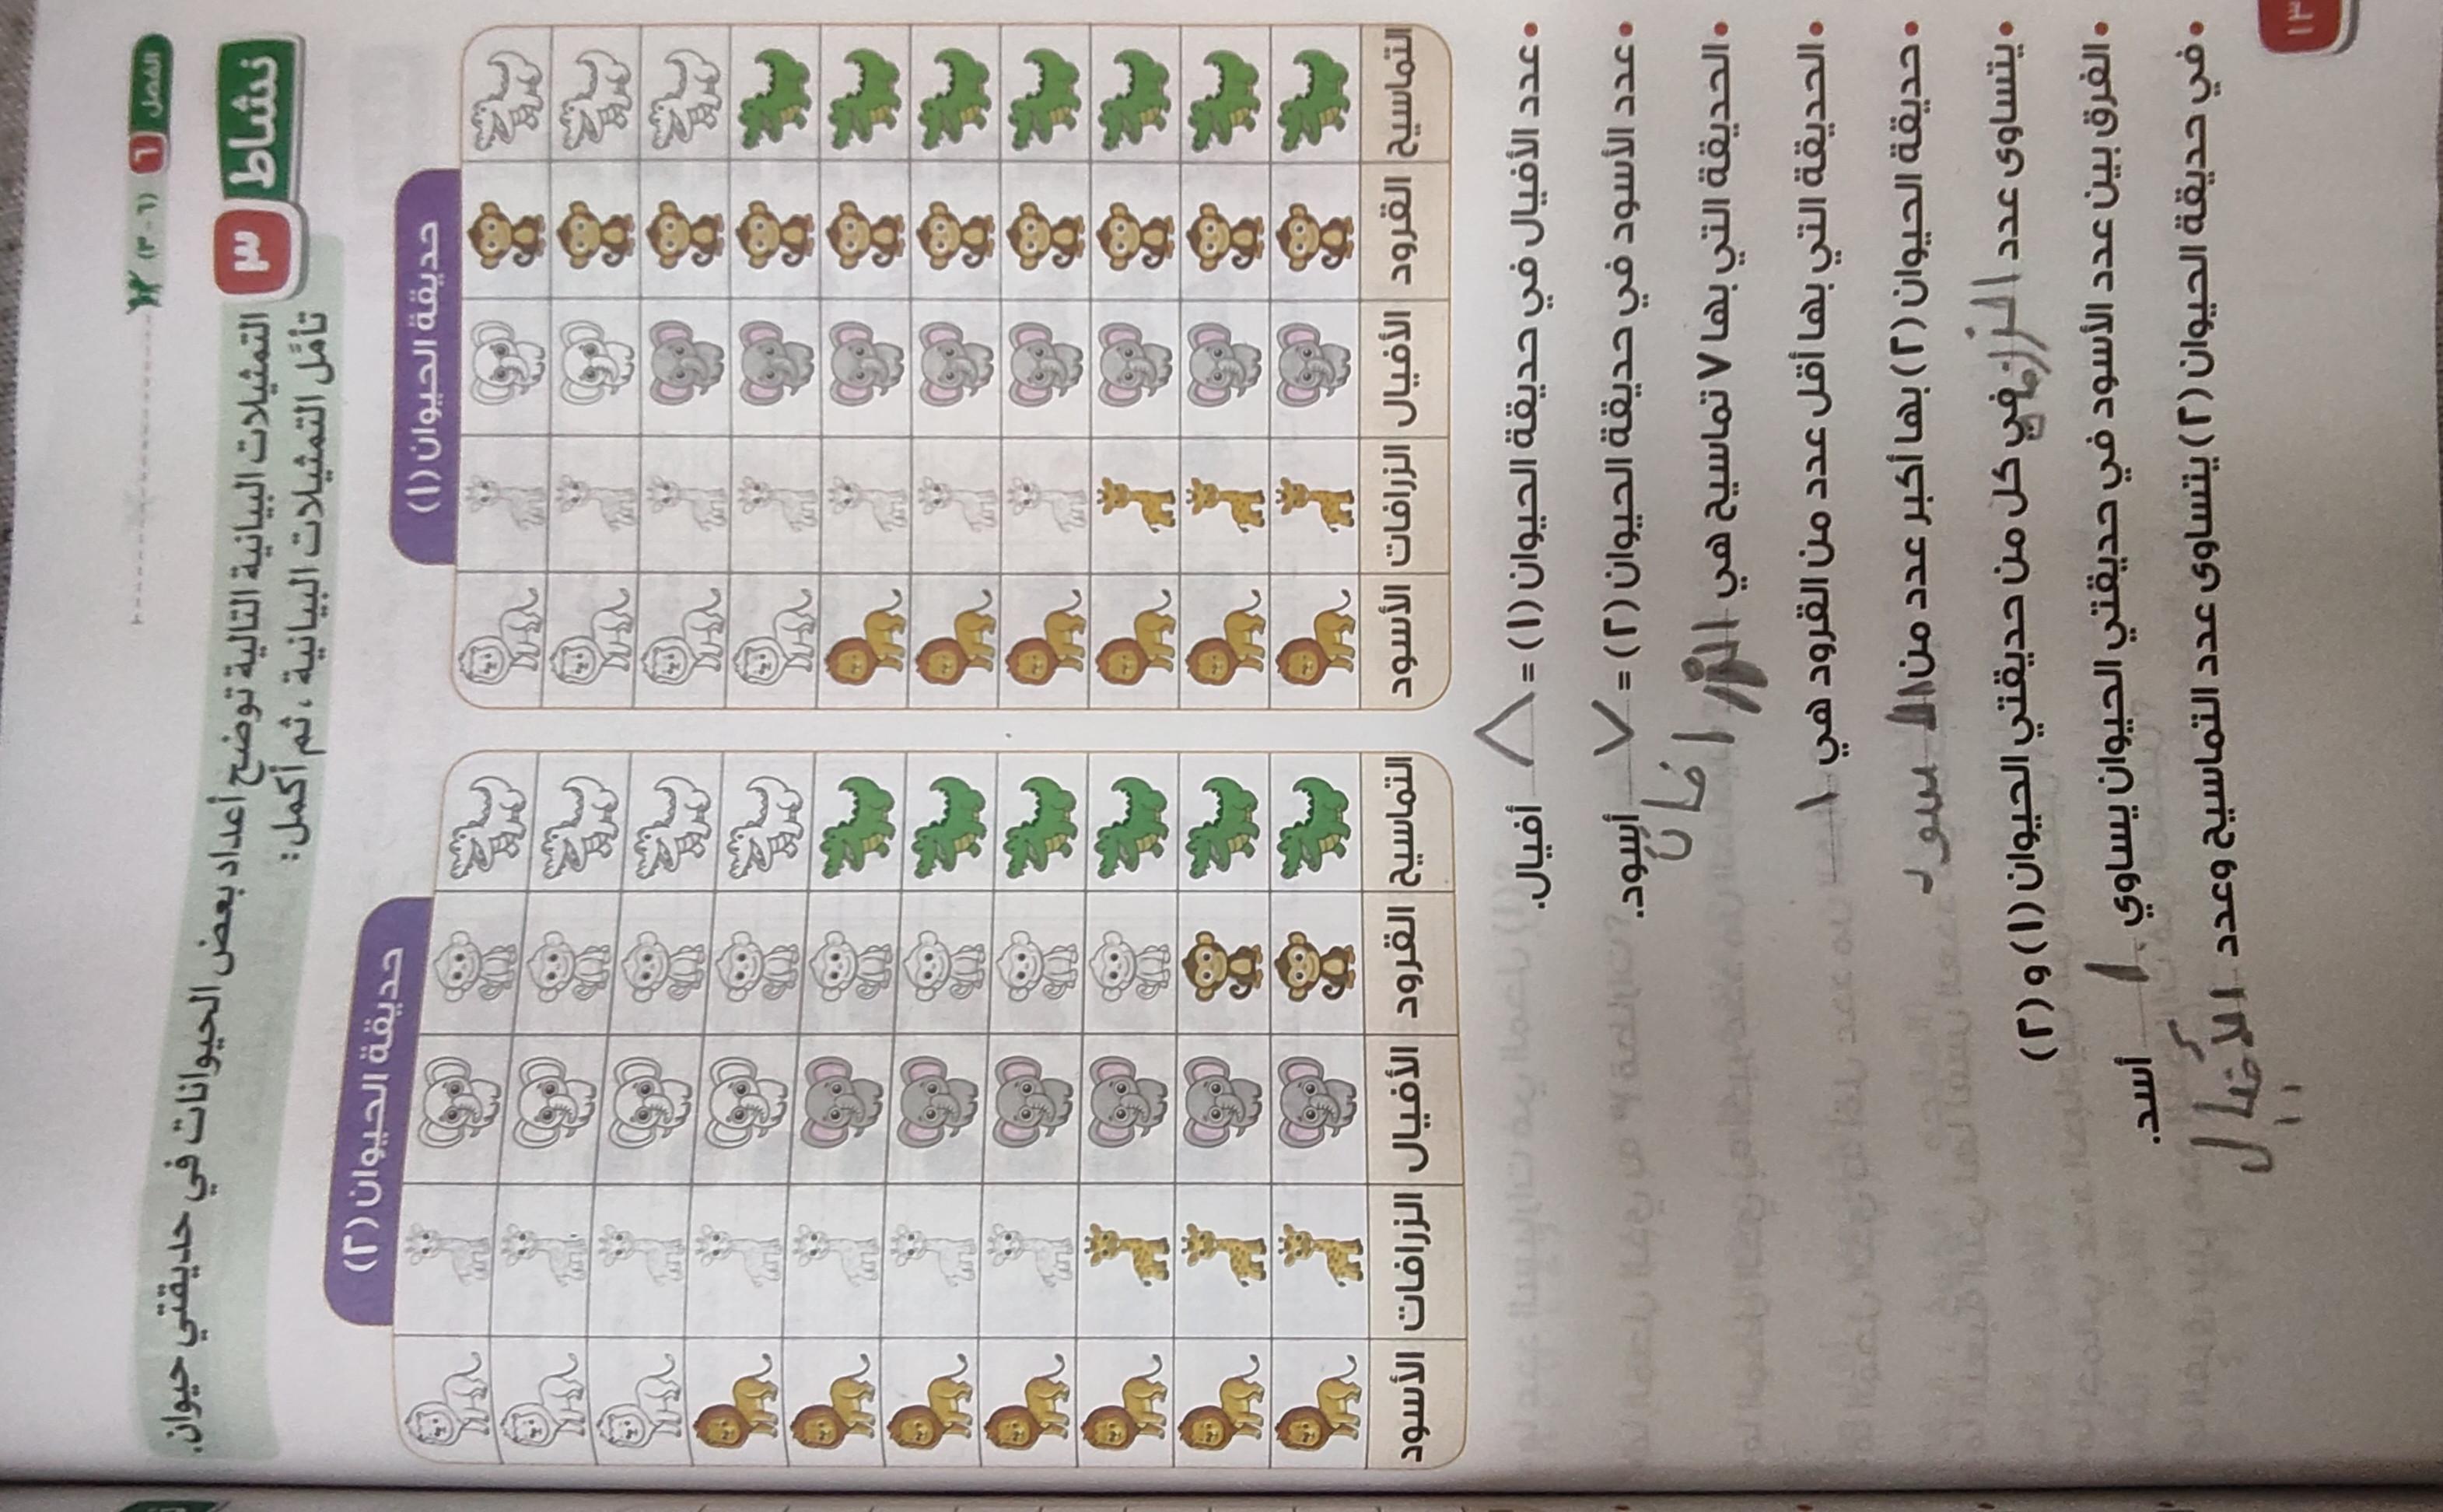 الفصل ٦ (٦-٣)
نشاط ٣
التمثيلات البيانية التالية توضح أعداد بعض الحيوانات في حديقتي حيوان.
تأمَّل التمثيلات البيانية ، ثم أكمل:
حديقة الحيوان (١)
التماسيح القرود الأفيال الزرافات الأسود
حديقة الحيوان (٢)
التماسيح القرود الأفيال الزرافات الأسود
• عدد الأفيال في حديقة الحيوان (١) = ٨ أفيال.
• عدد الأسود في حديقة الحيوان (٢) = ٧ أسود.
• الحديقة التي بها ٧ تماسيح هي
• الحديقة التي بها أقل عدد من القرود هي ١
• حديقة الحيوان (٢) بها أكبر عدد من
• يتساوى عدد الزرافات في كل من حديقتي الحيوان (١) و (٢)
• الفرق بين عدد الأسود في حديقتي الحيوان يساوي ١ أسد.
• في حديقة الحيوان (٢) يتساوى عدد التماسيح وعدد الافيال